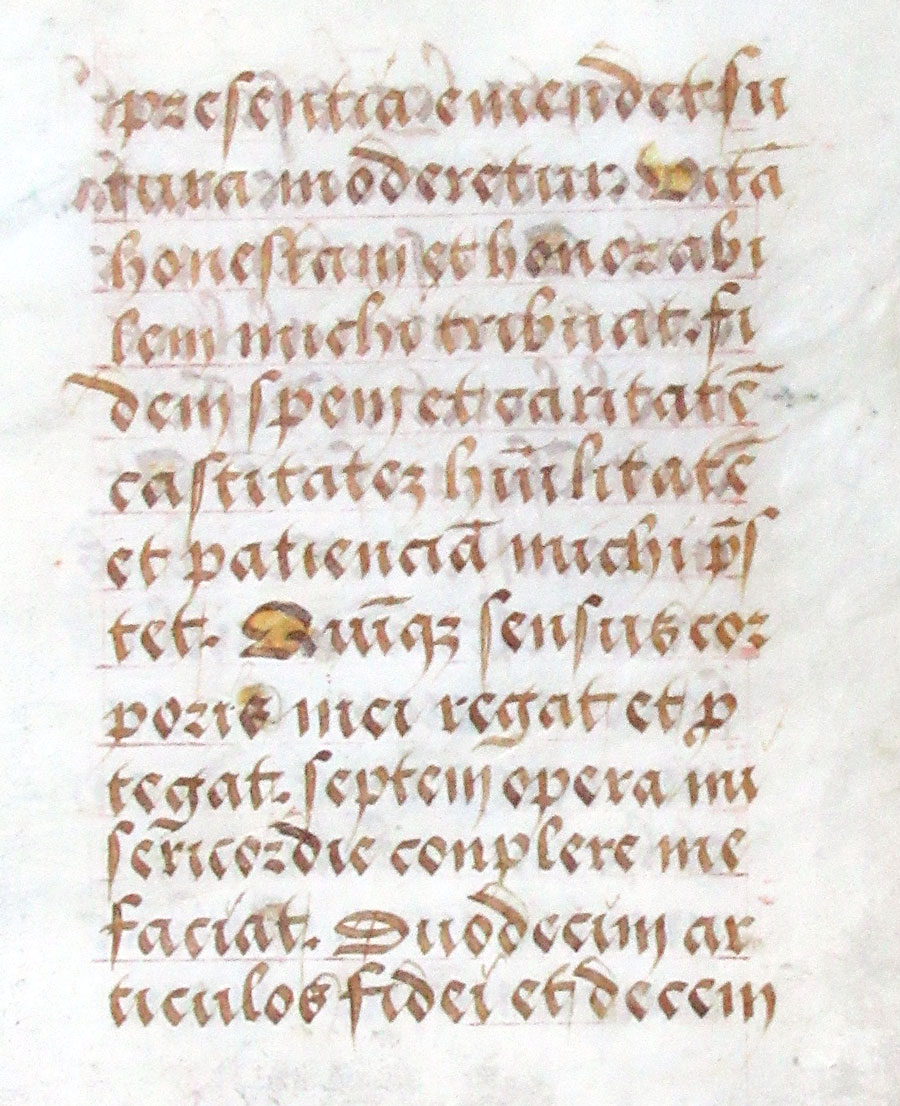 presentia emendet fu
tura moderetur. Vitā
honestam et honorabi
lem michi tribuat. fi
dem spem et caritatē
castitatez hūilitatē
et patienciā michi p̄s
tet. Quīqz sensus cor
poris mei regat et ꝓ
tegat. septem opera mi
sericordie conplere me
faciat. Duodecim ar
ticulos fidei et decem